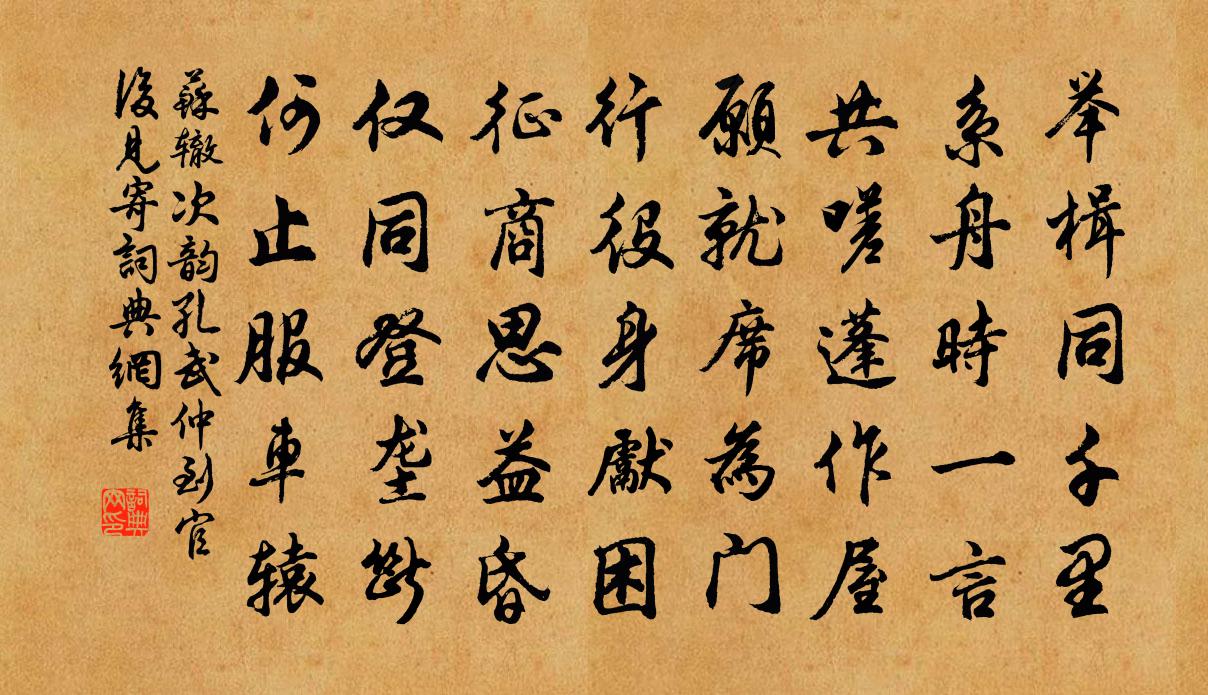 举楫同千里
系舟時一言
共嗟蓬作屋
願就席為门
行役身獻困
征商思益昏
仅同登垄断
何止服車辕
蘇辙次韵孔武仲到官
後見寄詞典網集
詞典网印